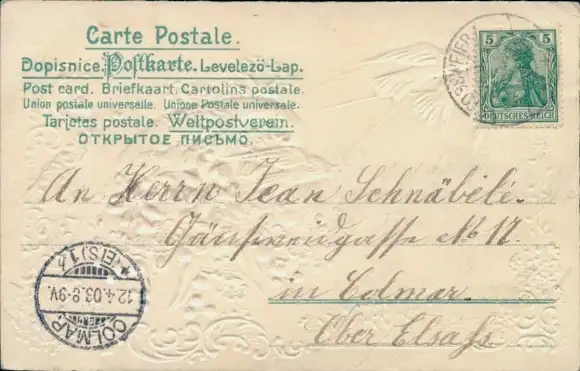 Carte Postale.
Dopisnice. Postkarte. Levelezö-Lap.
Post card. Briefkaart. Cartolina postale.
Union postale universelle. Unione Postale universale.
Tarjetas postale. Weltpostverein.
ОТКРЫТОЕ ПИСЬМО.
5 5
DEUTSCHES REICH
An Herrn Jean Schnäbele.
No 17.
in Colmar.
Ober Elsaß
(ELS) 1
12.4.03.8-9V.
COLMAR